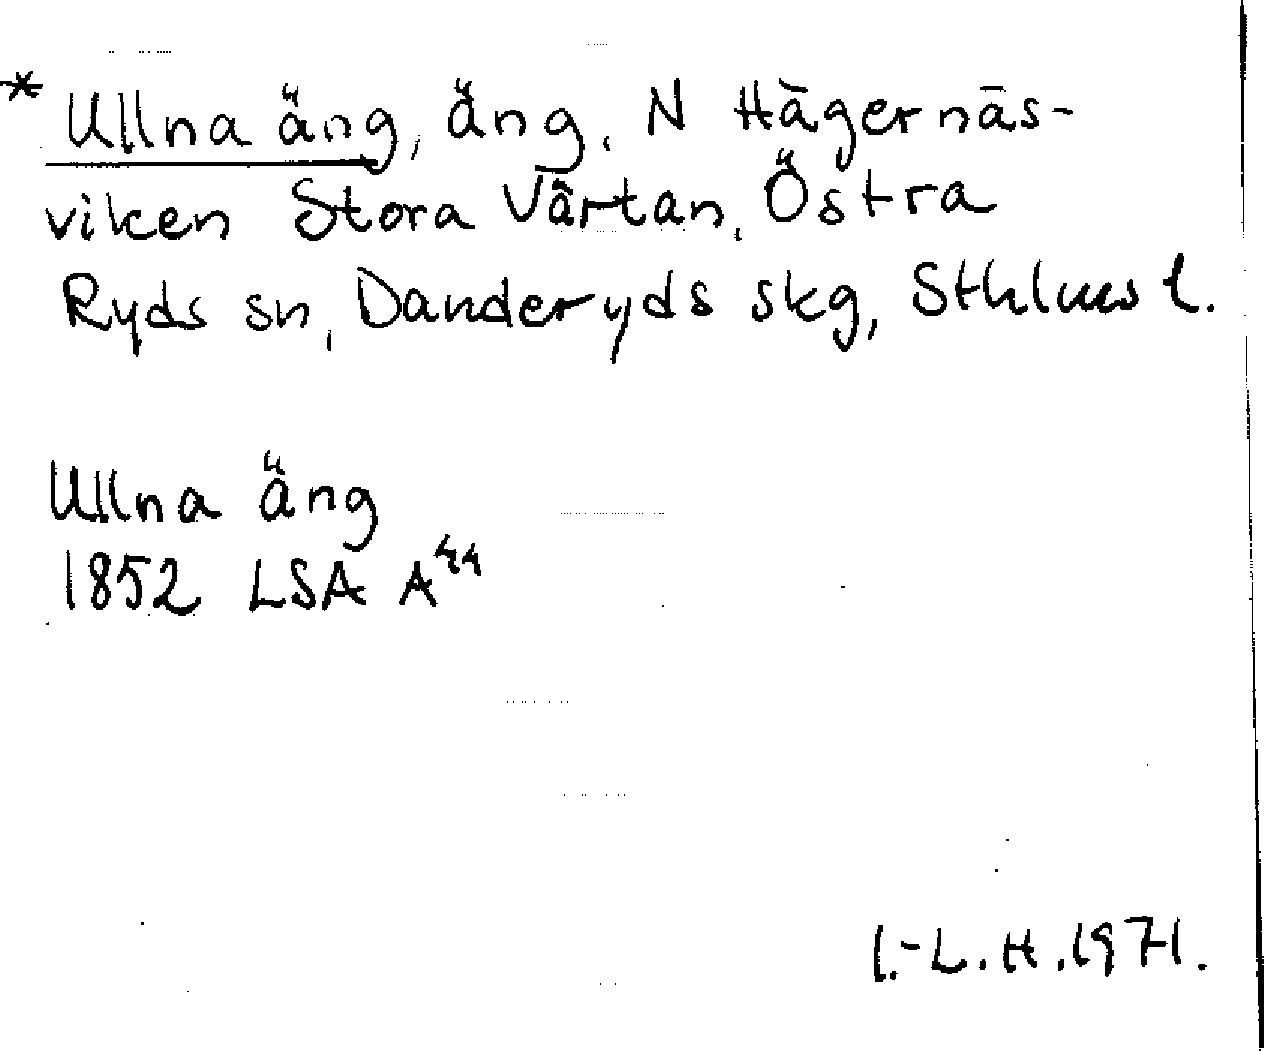 * Ullna äng, äng, N Hägernäs-
viken Stora Värtan, Östra
Ryds sn, Danderyds skg, Sthlms l.
Ullna äng
1852 LSA A⁴⁴
I.-L.H.1971.